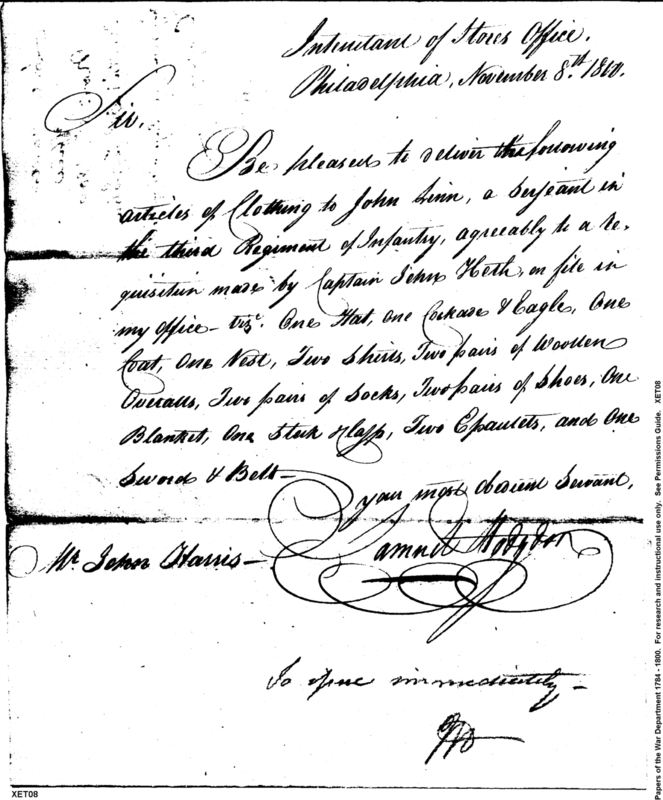 Intendant of Stores Office.
Philadelphia, November 8th. 1800.
Sir,
Be pleased to deliver the following
articles of Clothing to John Linn, a Serjeant in
the third Regiment of Infantry, agreeably to a re-
quisition made by Captain John Heth, on file in
my office – vizt. One Hat, one Cockade & Eagle, One
Coat, One Vest, Two Shirts, Two pairs of Woollen
Overalls, Two pairs of Socks, Two pairs of Shoes, One
Blanket, One Stock & Clasp, Two Epaulets, and One
Sword & Belt –
your most obedient Servant,
Samuel Hodgdon
Mr. John Harris –
To issue immediately –
XET08
Papers of the War Department 1784 - 1800. For research and instructional use only. See Permissions Guide. XET08